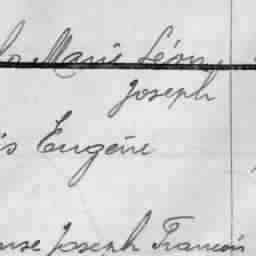 Marie Léon
Joseph
Eugène
Joseph Francois